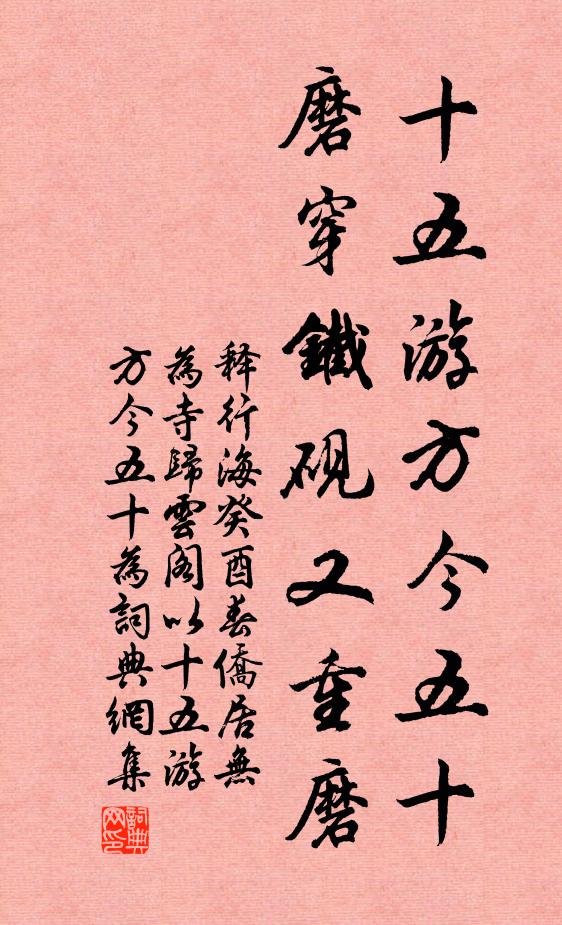 十五游方今五十
磨穿鐵硯又重磨
释行海癸酉春僑居無
為寺歸雲閣以十五游
方今五十為詞典網集
詞典网印